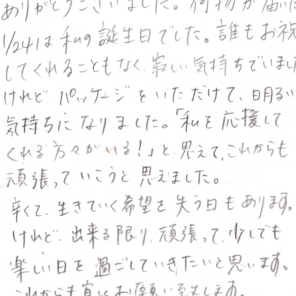 ありがとうございました。荷物が届い
1/24は私の誕生日でした。誰もお祝
してくれることもなく、寂しい気持ちでいまし
けれど パッケージをいただけて、明るい
気持ちになりました。「私を応援して
くれる方々がいる!」と思えて、これからも
頑張っていこうと思えました。
辛くて、生きていく希望を失う日もあります。
けれど、出来る限り、頑張って、少しでも
楽しい日を過ごしていきたいと思います。
これからも宜しくお願い致します。